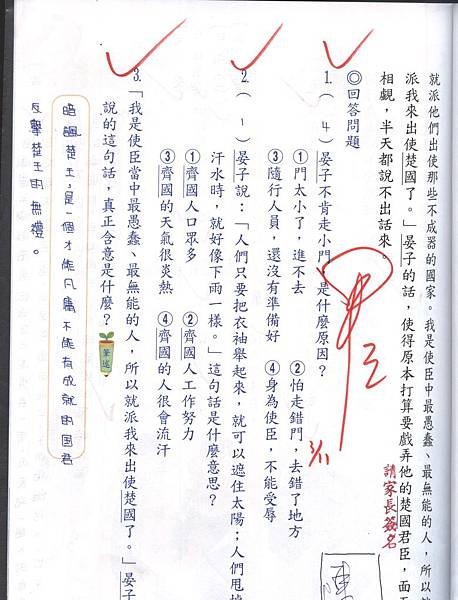 就派他們出使那些不成器的國家。我是使臣中最愚蠢、最無能的人，所以就
派我來出使楚國了。」晏子的話，使得原本打算要戲弄他的楚國君臣，面
相覷，半天都說不出話來。
請家長簽名
◎回答問題
1.（ 4 ）晏子不肯走小門，是什麼原因？
①門太小了，進不去 ②怕走錯門，去錯了地方
③隨行人員，還沒有準備好 ④身為使臣，不能受辱
3/11
2.（ 1 ）晏子說：「人們只要把衣袖舉起來，就可以遮住太陽；人們甩掉
汗水時，就好像下雨一樣。」這句話是什麼意思？
①齊國人口眾多 ②齊國人工作努力
③齊國的天氣很炎熱 ④齊國的人很會流汗
3.「我是使臣當中最愚蠢、最無能的人，所以就派我來出使楚國了。」晏子
說的這句話，真正含意是什麼？ 筆述
暗諷楚王，是一個才能凡庸不能有成就的国君
反擊楚王的無禮。